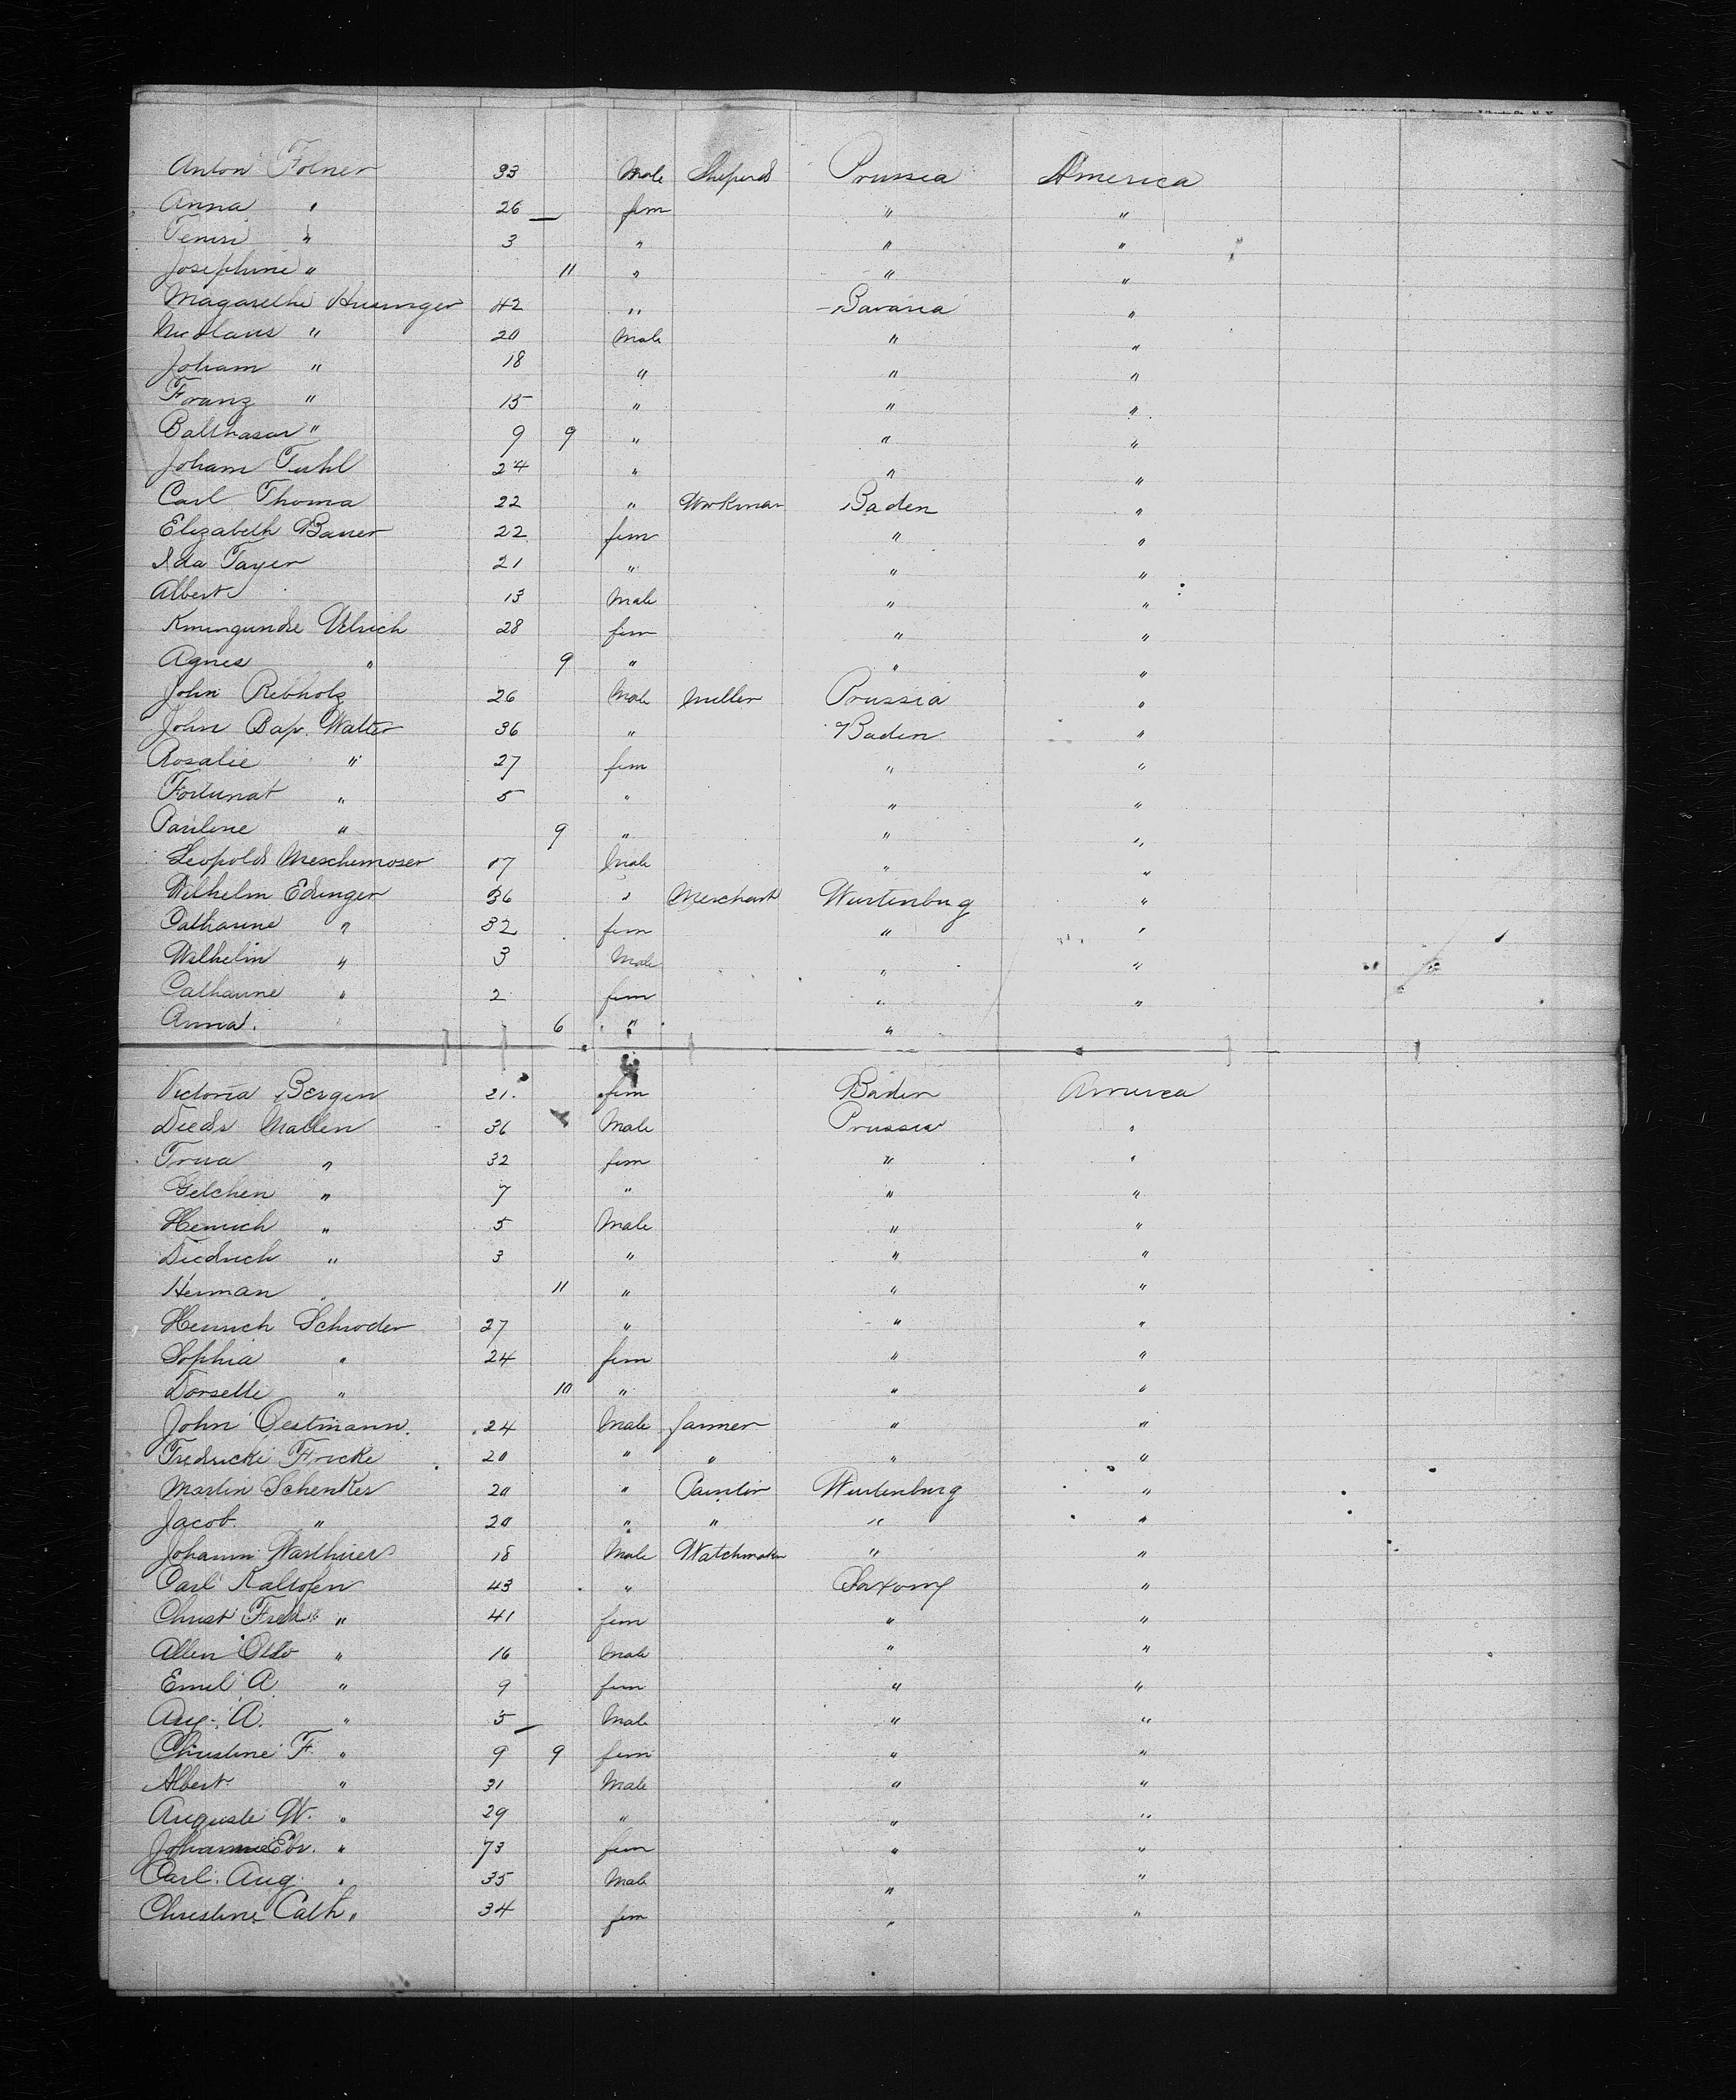 Anton Folner 33 Male Sheperd Prussia America
Anna " 26 fem " "
" 3 " " "
Josephine " 11 " " "
Magarethe 42 " Bavaria "
Nicolaus " 20 Male " "
Joham " 18 " " "
Franz " 15 " " "
Balthasar " 9 9 " " "
Joham Tuhl 24 " " "
Carl Thoma 22 " Workman Baden "
Elizabeth Bauer 22 fem " "
Ida Tayer 21 " " "
Albert 13 Male " "
Ulrich 28 fem " "
Agnes " 9 " " "
John Rebholz 26 Male Miller Prussia "
John Bap. Walter 36 " Baden "
Rosalie " 27 fem " "
Fortunat " 5 " " "
Pauline " 9 " " "
Leopold Meschemoser 17 Male " "
Wilhelm Edinger 36 " Merchant Wurtenburg "
Catharine " 32 fem " "
Wilhelm " 3 Male " "
Catharine " 2 fem " "
Anna 6 " "
Victoria Bergen 21 fem Baden America
Mallen 36 Male Prussia "
" 32 fem " "
Gelchen " 7 " " "
Heinrich " 5 Male " "
Diedrich " 3 " " "
Herman " 11 " " "
Heinrich Schroder 27 " " "
Sophia " 24 fem " "
Dorsette " 10 " " "
John Oestmann. 24 Male farmer " "
Fredricke Fricke 20 " " " "
Martin Schenker 20 " Painter Wurtenburg "
Jacob " 20 " " " "
Johann 18 Male Watchmaker " "
Carl Kaltofen 43 " Saxony "
Christ Fred " 41 fem " "
Allen Otto " 16 Male " "
Emil A " 9 fem " "
Aug. A. " 5 Male " "
Christine F. " 9 9 fem " "
Albert " 31 Male " "
Auguste W. " 29 " " "
Johanne Ebr. " 73 fem " "
Carl. Aug. " 35 Male " "
Christine Cath. " 34 fem " "